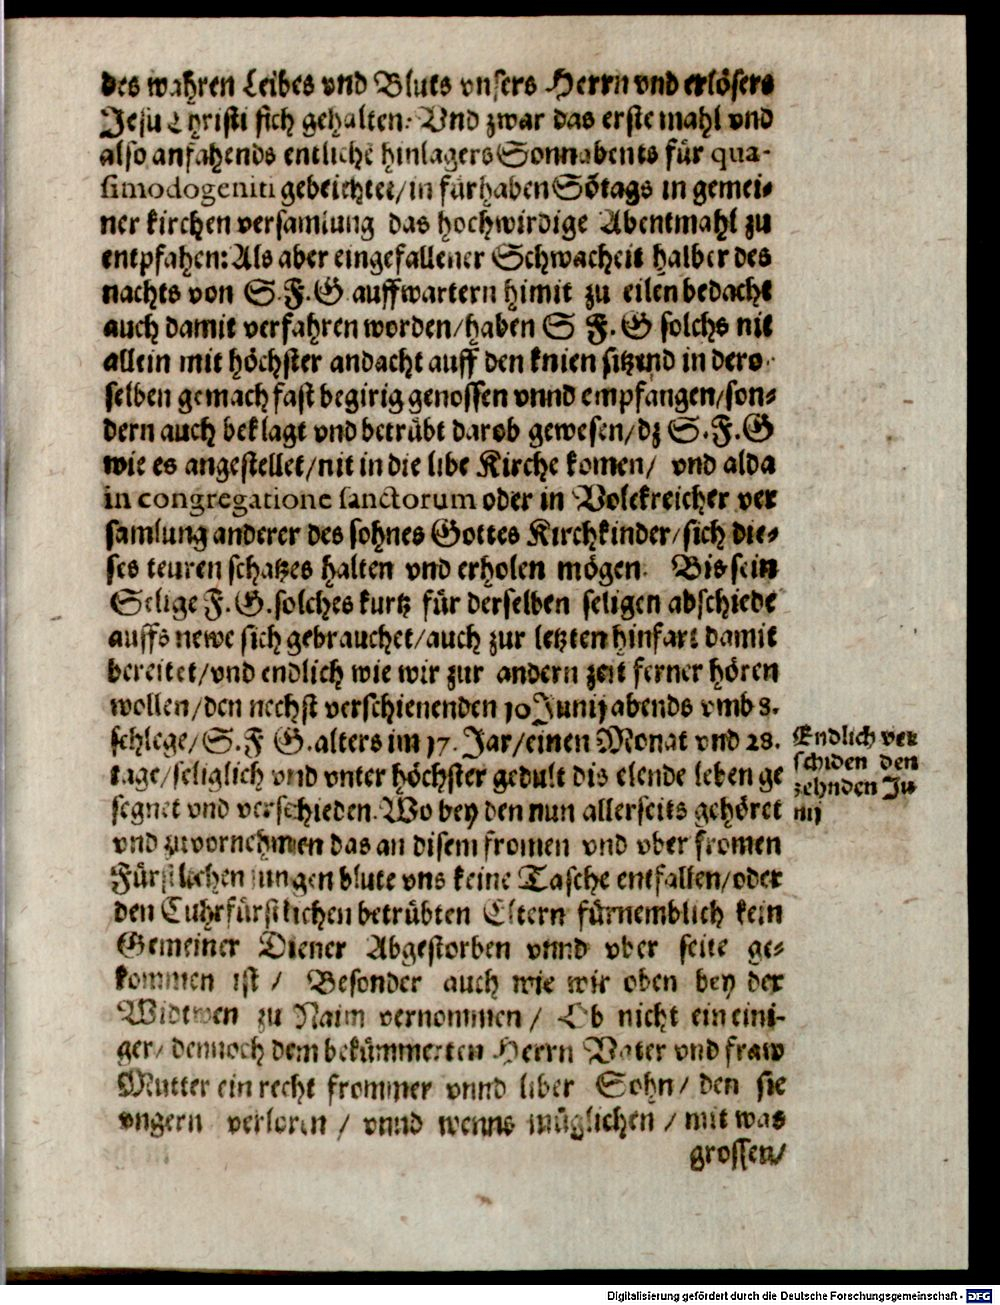 des wahren Leibes vnd Bluts vnsers Herrn vnd erlösers
Jesu Christi sich gehalten: Vnd zwar das erste mahl vnd
also anfahends entliche hinlagers Sonnabents für qua-
simodogeniti gebeichtet/in fürhaben Sõtags in gemei-
ner kirchen versamlung das hochwirdige Abentmahl zu
entpfahen: Als aber eingefallener Schwacheit halber des
nachts von S.F.G auffwartern himit zu eilen bedacht
auch damit verfahren worden/haben S F. G solchs nit
allein mit höchster andacht auff den knien sitzend in dero
selben gemach fast begirig genossen vnnd empfangen/son-
dern auch beklagt vnd betrübt darob gewesen/dz S.F.G
wie es angestellet/nit in die libe Kirche komen/ vnd alda
in congregatione sanctorum oder in Volckreicher ver
samlung anderer des sohnes Gottes Kirchkinder/sich die-
ses teuren schatzes halten vnd erholen mögen. Bis sein
Selige F.G.solches kurtz für derselben seligen abschiede
auffs newe sich gebrauchet/auch zur letzten hinfart damit
bereitet/vnd endlich wie wir zur andern zeit ferner hören
wollen/den nechst verschienenden 10 Junij abends vmb 8.
schlege/S.F G.alters im 17. Jar/einen Monat vnd 28.
tage/seliglich vnd vnter höchster gedult dis elende leben ge
segnet vnd verschieden. Wo bey den nun allerseits gehöret
vnd zuvornehmen das an disem fromen vnd vber fromen
Fürstlichen jungen blute vns keine Tasche entfallen/oder
den Cuhrfürstlichen betrübten Eltern fürnemblich kein
Gemeiner Diener Abgestorben vnnd vber seite ge-
kommen ist / Besonder auch wie wir oben bey der
Widtwen zu Naim vernommen / Ob nicht ein eini-
ger/ dennoch dem bekümmerten Herrn Vater vnd fraw
Mutter ein recht frommer vnnd liber Sohn/ den sie
vngern verloren / vnnd wenns müglichen / mit was
grossen/
Endlich ver
schiden den
zehnden Ju
nij
Digitalisierung gefördert durch die Deutsche Forschungsgemeinschaft - DFG